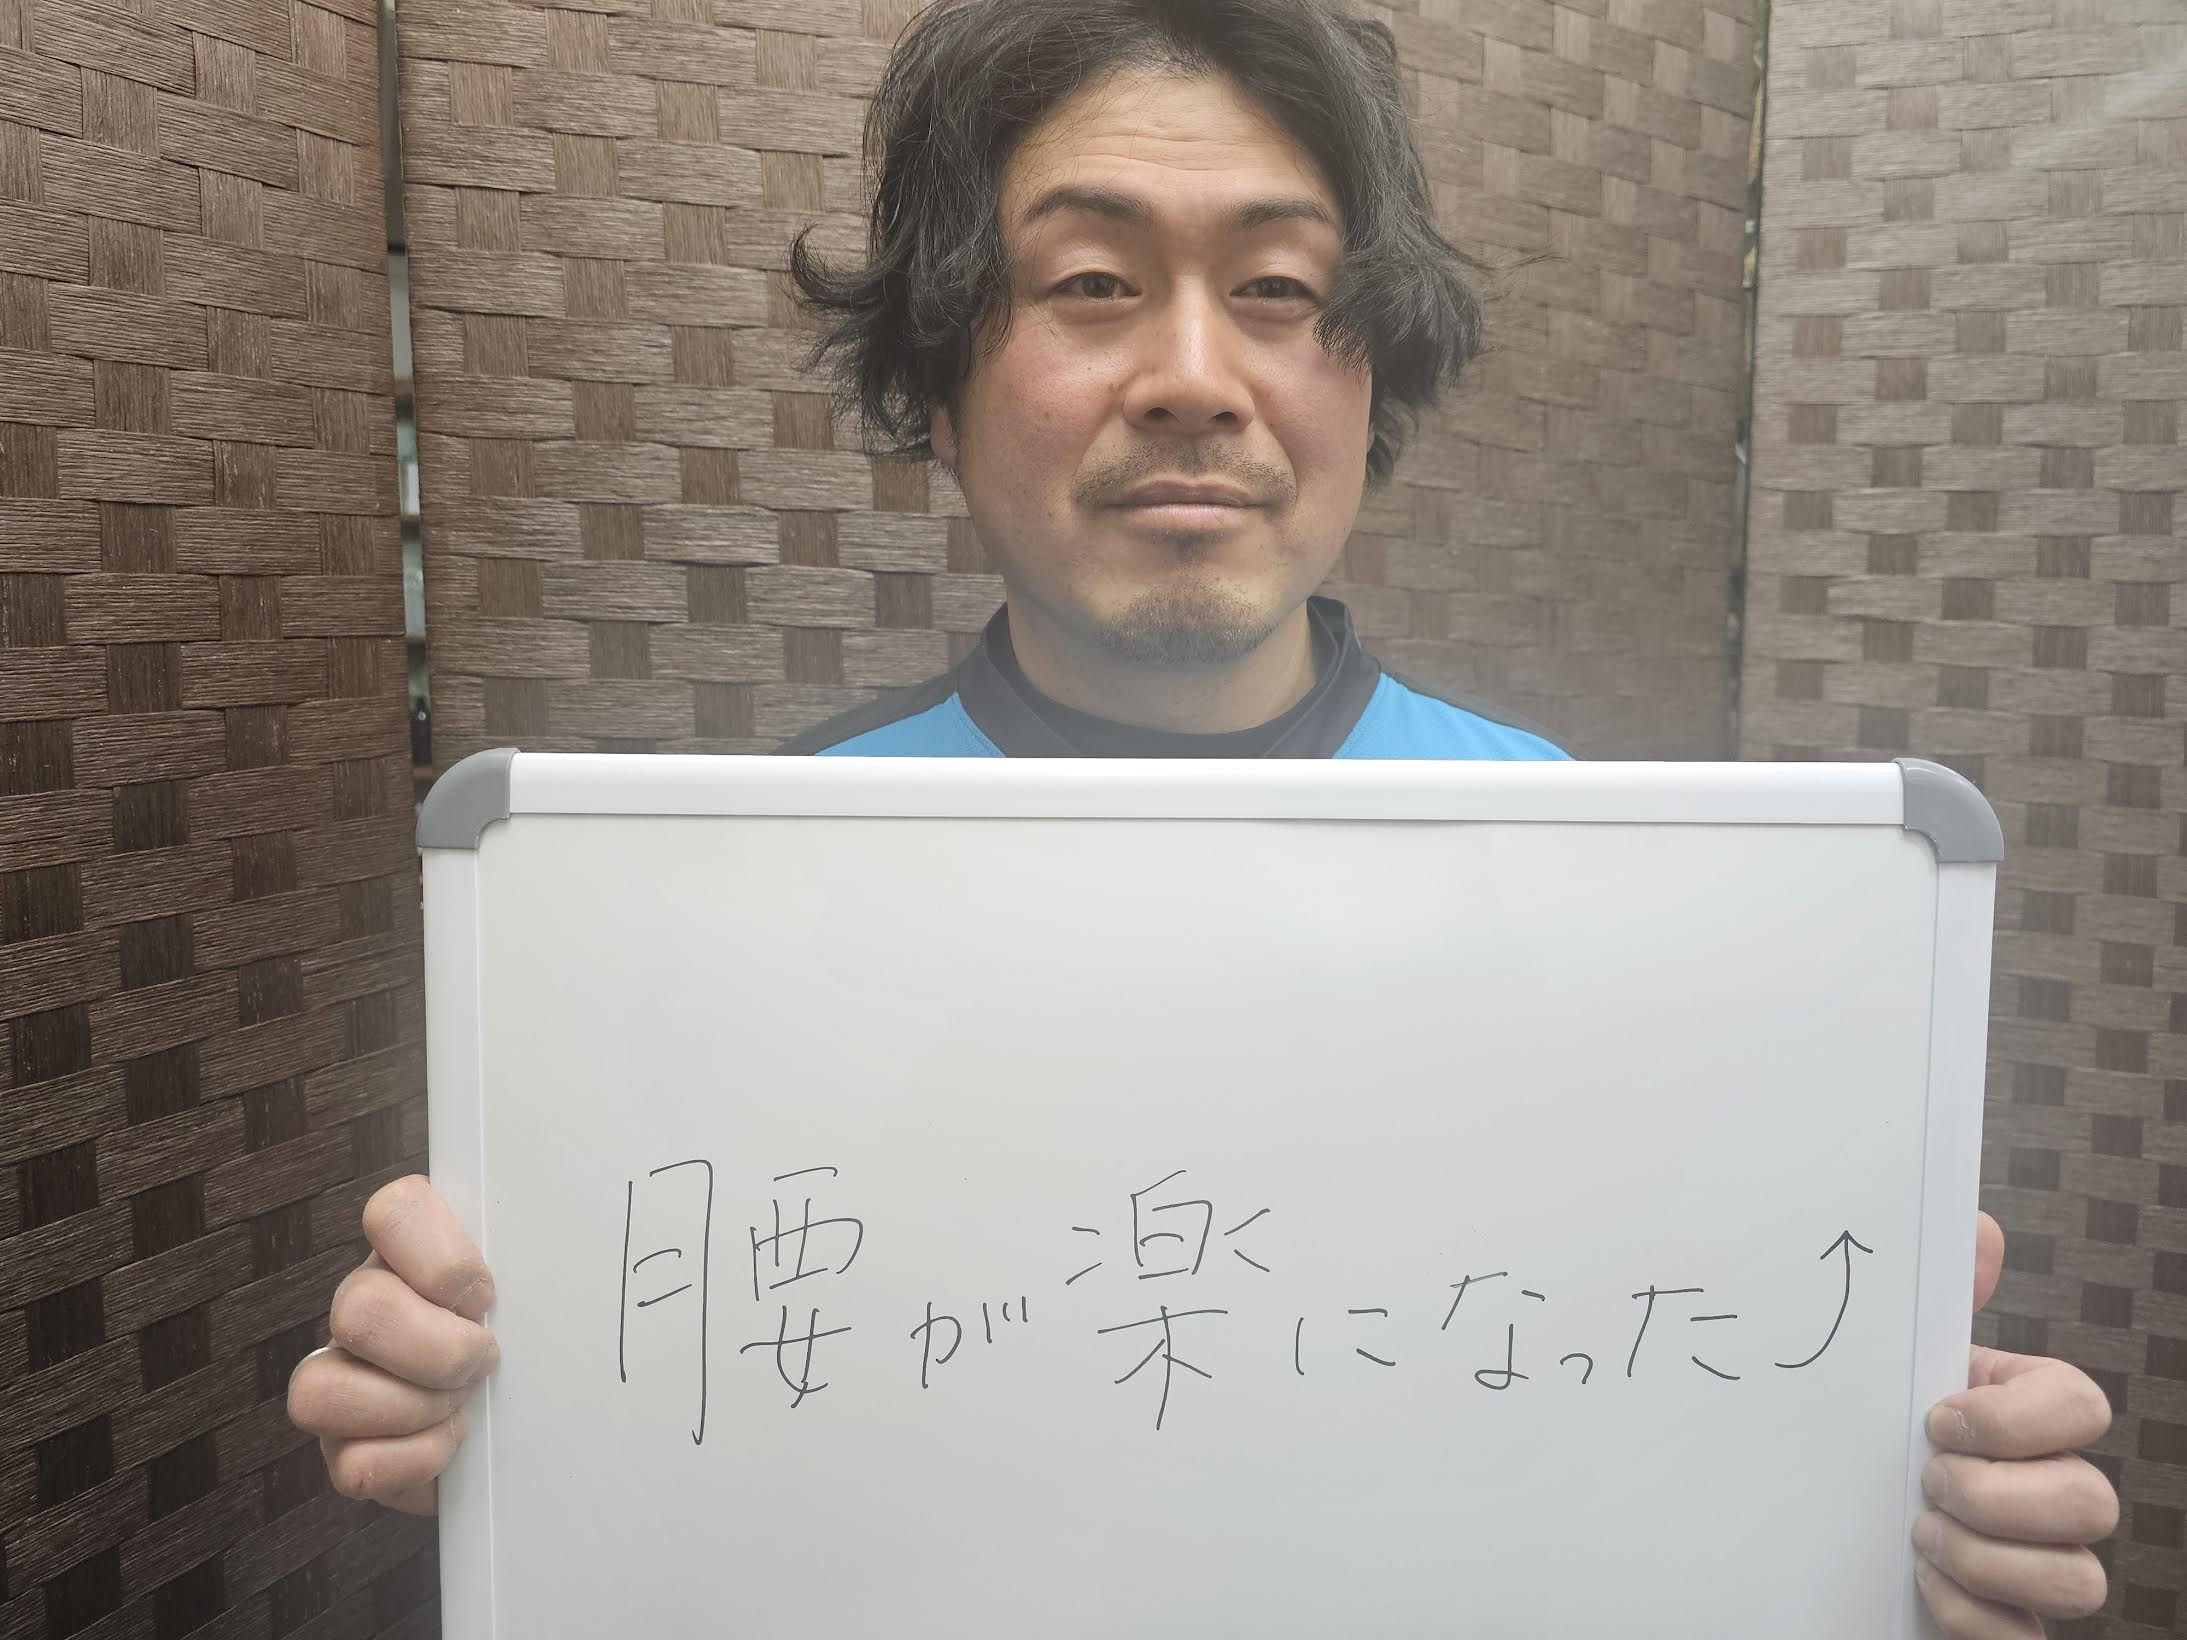 腰が楽になった⤴